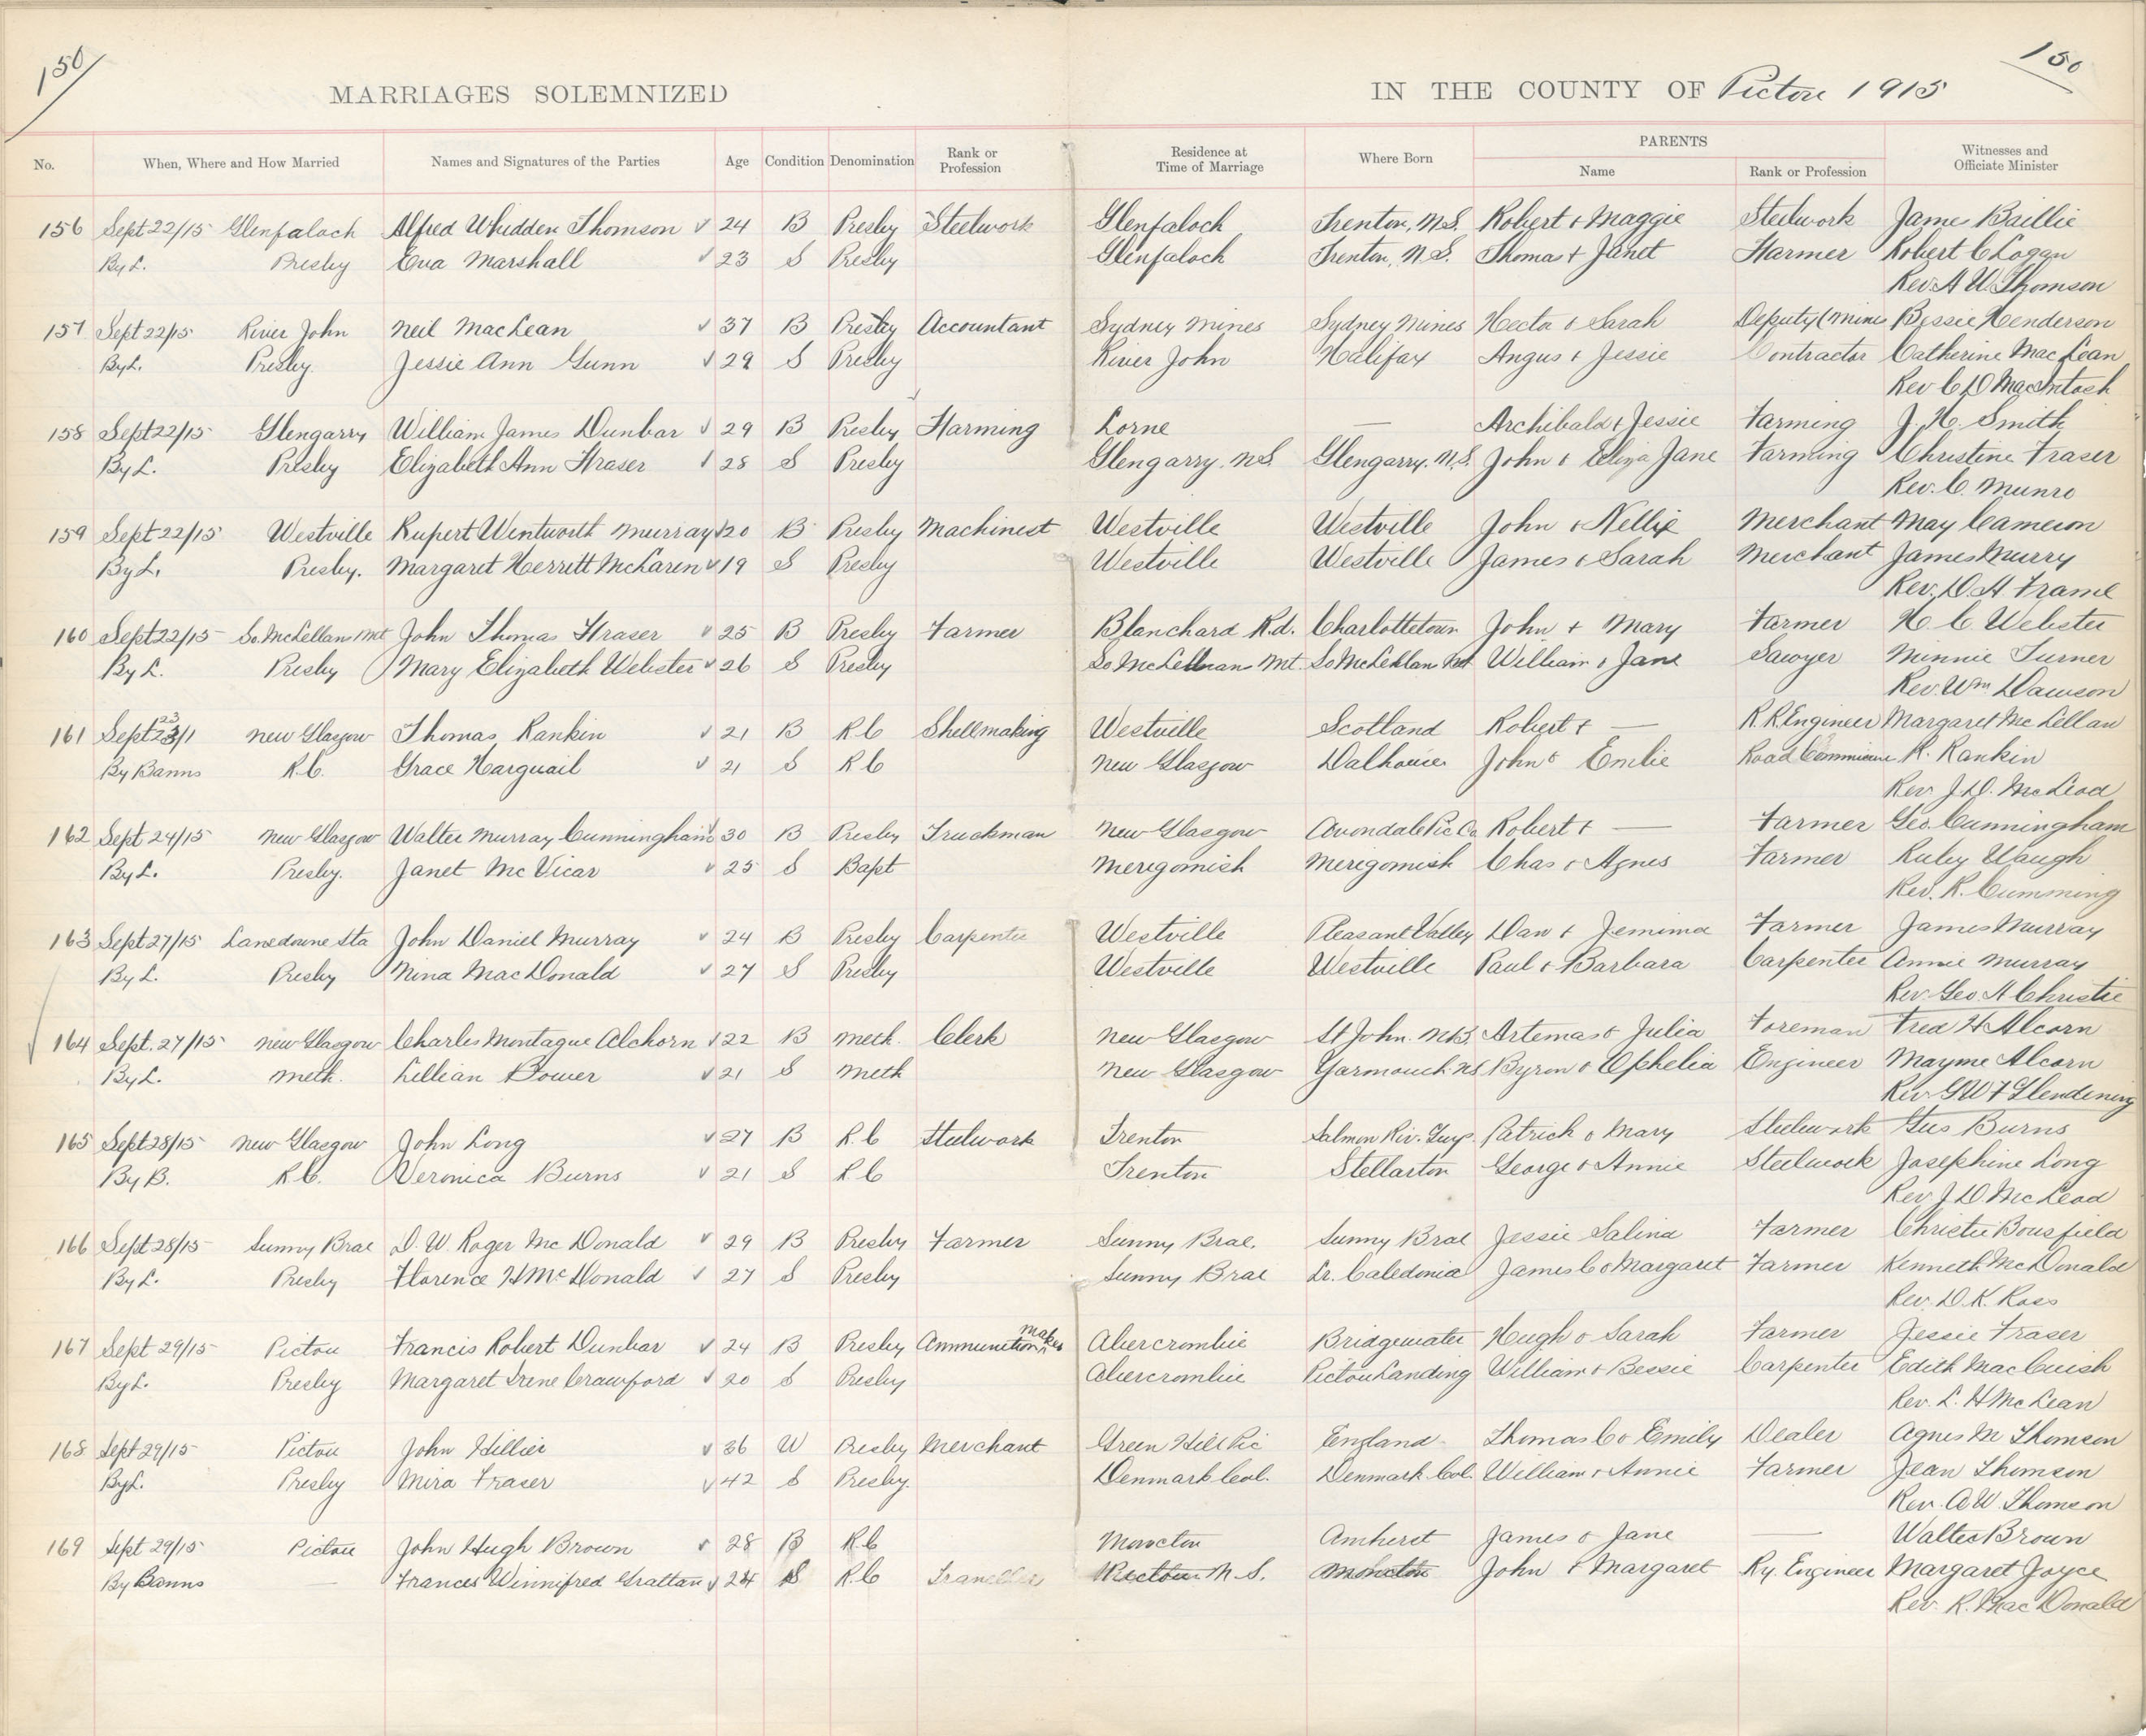 150 150
MARRIAGES SOLEMNIZED IN THE COUNTY OF Pictou 1915
No. When, Where and How Married Names and Signatures of the Parties Age Condition Denomination Rank or Profession Residence at Time of Marriage Where Born PARENTS Name Rank or Profession Witnesses and Officiate Minister
156 Sept 22/15 Glenfaloch Alfred Whidden Thomson 24 B Presby Steelwork Glenfaloch Trenton, N.S. Robert + Maggie Steelwork James Baillie
By L. Presby Eva Marshall 23 S Presby Glenfaloch Trenton, N.S. Thomas + Janet Farmer Robert C Logan
Rev. A W. Thomson
157 Sept 22/15 River John Neil MacLean 37 B Presby Accountant Sydney Mines Sydney Mines Hector & Sarah Deputy (Mine Bessie Henderson
By L. Presby. Jessie Ann Gunn 29 S Presby River John Halifax Angus + Jessie Contractor Catherine MacLean
Rev C D MacIntosh
158 Sept 22/15 Glengarry William James Dunbar 29 B Presby Farming Lorne — Archibald + Jessie Farming J. H. Smith
By L. Presby Elizabeth Ann Fraser 28 S Presby Glengarry. N.S. Glengarry. N.S. John & Eliza Jane Farming Christine Fraser
Rev. C. Munro
159 Sept 22/15 Westville Rupert Wentworth Murray 20 B Presby Machinest Westville Westville John & Nellie Merchant May Cameron
By L. Presby. Margaret Herritt McLaren 19 S Presby Westville Westville James & Sarah Merchant James Murry
Rev. D A Frame
160 Sept 22/15 So. McLellans Mt John Thomas Fraser 25 B Presby Farmer Blanchard R.d. Charlottetown John + Mary Farmer H. C Webster
By L. Presby Mary Elizabeth Webster 26 S Presby So McLellan Mt. So McLellan Mt William & Jane Sawyer Minnie Turner
Rev. Wm Dawson
161 Sept 23/1 New Glasgow Thomas Rankin 21 B R C Shellmaking Westville Scotland Robert + — R.R. Engineer Margaret McLellan
By Banns R.C. Grace Harquail 21 S R C New Glasgow Dalhousie John & Emlie Road R. Rankin
Rev. J. D. McLeod
162 Sept 24/15 New Glasgow Walter Murray Cunningham 30 B Presby Truckman New Glasgow Avondale Pic Co Robert + — Farmer Geo. Cunningham
By L. Presby. Janet McVicar 25 S Bapt Merigomish Merigomish Chas & Agnes Farmer Ruby Waugh
Rev. R. Cumming
163 Sept 27/15 Lansdowne Sta John Daniel Murray 24 B Presby Carpenter Westville Pleasant Valley Dan + Jemima Farmer James Murray
By L. Presby Nina MacDonald 27 S Presby Westville Westville Paul & Barbara Carpenter Annie Murray
Rev. Geo. A Christie
164 Sept. 27/15 New Glasgow Charles Montague Alchorn 22 B Meth. Clerk New Glasgow St John. N.B. Artemas & Julia Foreman Fred H Alcorn
By L. Meth. Lillian Bower 21 S Meth New Glasgow Yarmouth. NS Byron & Ophelia Engineer Mayme Alcorn
Rev G W F Glendening
165 Sept 28/15 New Glasgow John Long 27 B R.C Steelwork Trenton Salmon Riv. Guys. Patrick & Mary Steelwork Gus Burns
By B. R.C. Veronica Burns 21 S R C Trenton Stellarton George & Annie Steelwork Josephine Long
Rev J. D. McLeod
166 Sept 28/15 Sunny Brae D. W. Roger McDonald 29 B Presby Farmer Sunny Brae. Sunny Brae Jessie Salina Farmer Christie Bousfield
By L. Presby Florence H McDonald 27 S Presby Sunny Brae Lr. Caledonia James C & Margaret Farmer Kenneth McDonald
Rev. D. K. Ross
167 Sept 29/15 Pictou Francis Robert Dunbar 24 B Presby Ammunition maker Abercrombie Bridgewater Hugh & Sarah Farmer Jessie Fraser
By L. Presby Margaret Irene Crawford 20 S Presby Abercrombie Pictou Landing William & Bessie Carpenter Edith MacCuish
Rev. L. H McLean
168 Sept 29/15 Pictou John Hillier 36 W Presby Merchant Green Hill Pic England Thomas C & Emily Dealer Agnes M Thomson
By L. Presby Mira Fraser 42 S Presby. Denmark Col. Denmark Col. William & Annie Farmer Jean Thomson
Rev. A W. Thomson
169 Sept 29/15 Pictou John Hugh Brown 28 B R C Moncton Amherst James & Jane — Walter Brown
By Banns — Frances Winnifred Grattan 24 S R.C Pictou N.S. Moncton John & Margaret Ry. Engineer Margaret Joyce
Rev. R. MacDonald